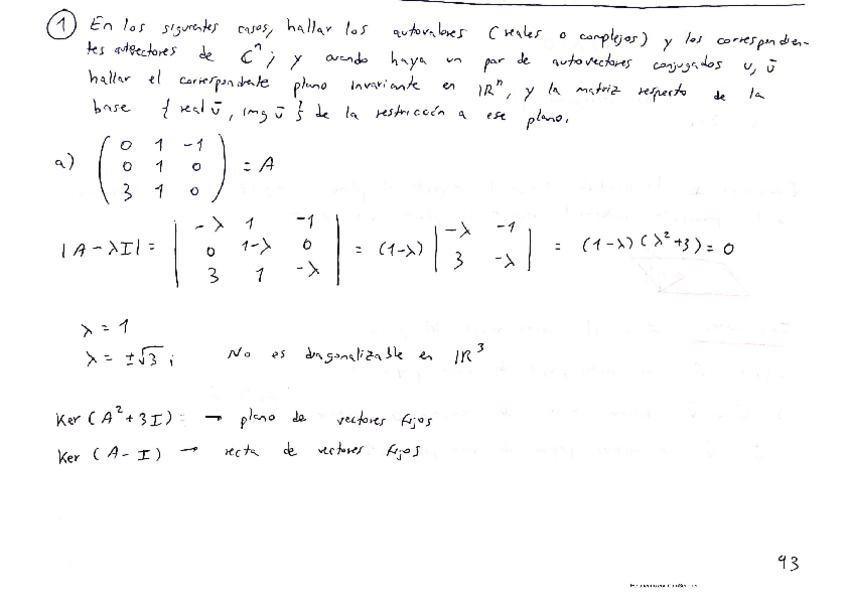 ① En los siguientes casos, hallar los autovalores (reales o complejos) y los correspondien-
tes autovectores de Cⁿ; y cuando haya un par de autovectores conjugados u, ū
hallar el correspondiente plano invariante en IRⁿ, y la matriz respecto de la
base { real ū, img ū } de la restricción a ese plano.
a) ( 0 1 -1 ; 0 1 0 ; 3 1 0 ) = A
|A-λI| = | -λ 1 -1 ; 0 1-λ 0 ; 3 1 -λ | = (1-λ) | -λ -1 ; 3 -λ | = (1-λ)(λ²+3) = 0
λ = 1
λ = ±√3 i No es diagonalizable en IR³
Ker (A²+3I) = → plano de vectores fijos
Ker (A-I) → recta de vectores fijos
93